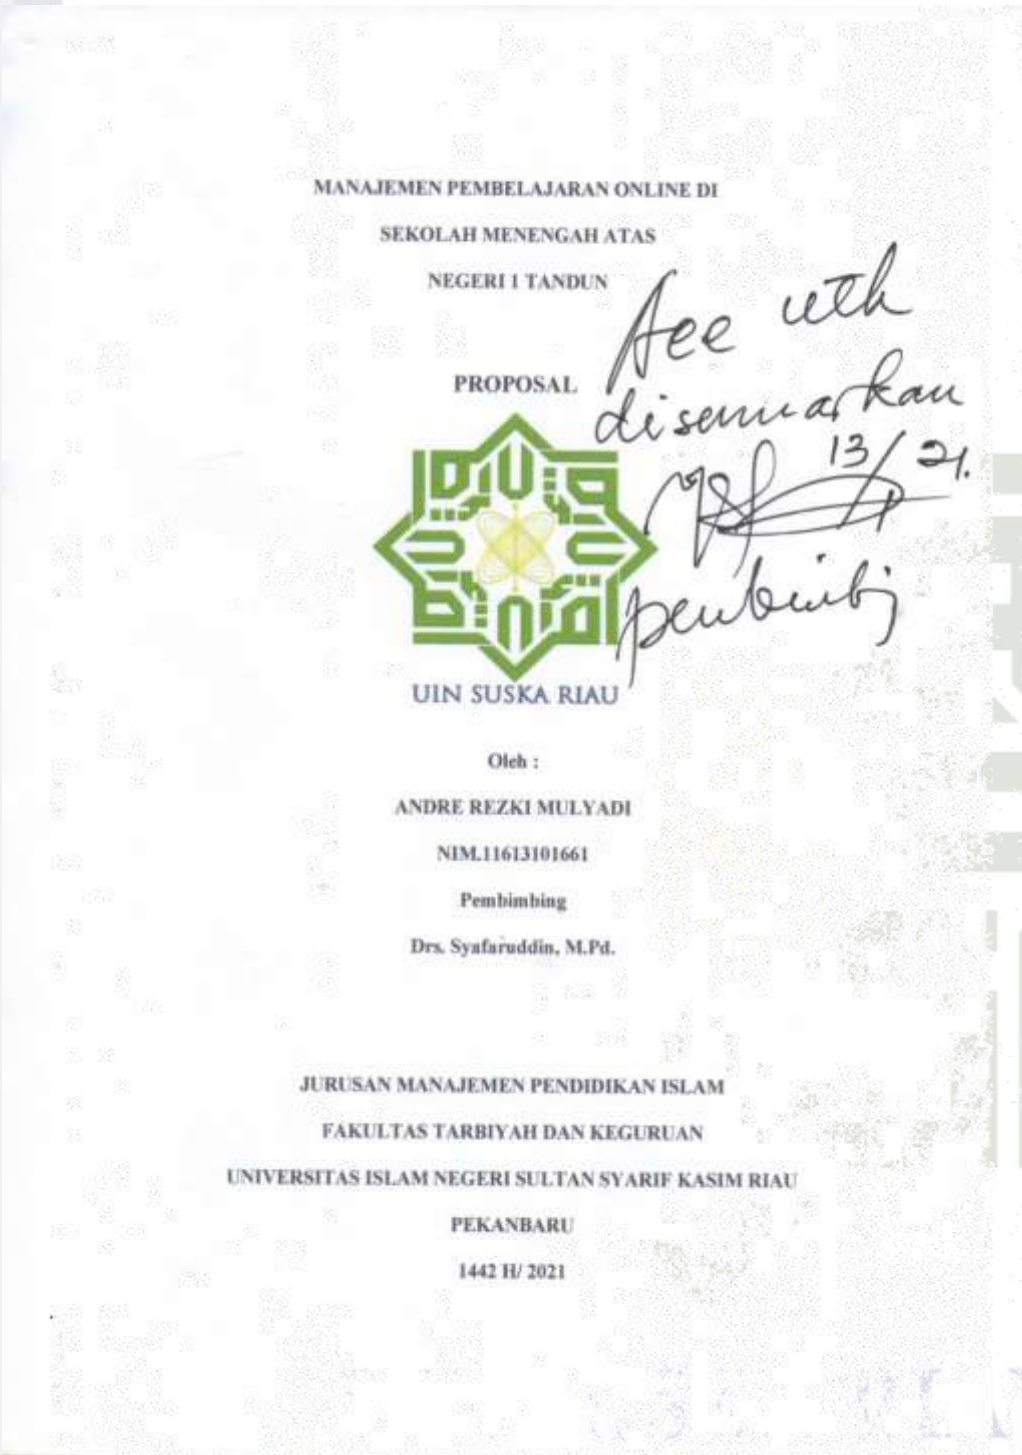 MANAJEMEN PEMBELAJARAN ONLINE DI
SEKOLAH MENENGAH ATAS
NEGERI 1 TANDUN
Acc utk
diseminarkan
13/ 21.
pembimbing
PROPOSAL
UIN SUSKA RIAU
Oleh :
ANDRE REZKI MULYADI
NIM.11613101661
Pembimbing
Drs. Syafaruddin, M.Pd.
JURUSAN MANAJEMEN PENDIDIKAN ISLAM
FAKULTAS TARBIYAH DAN KEGURUAN
UNIVERSITAS ISLAM NEGERI SULTAN SYARIF KASIM RIAU
PEKANBARU
1442 H/ 2021